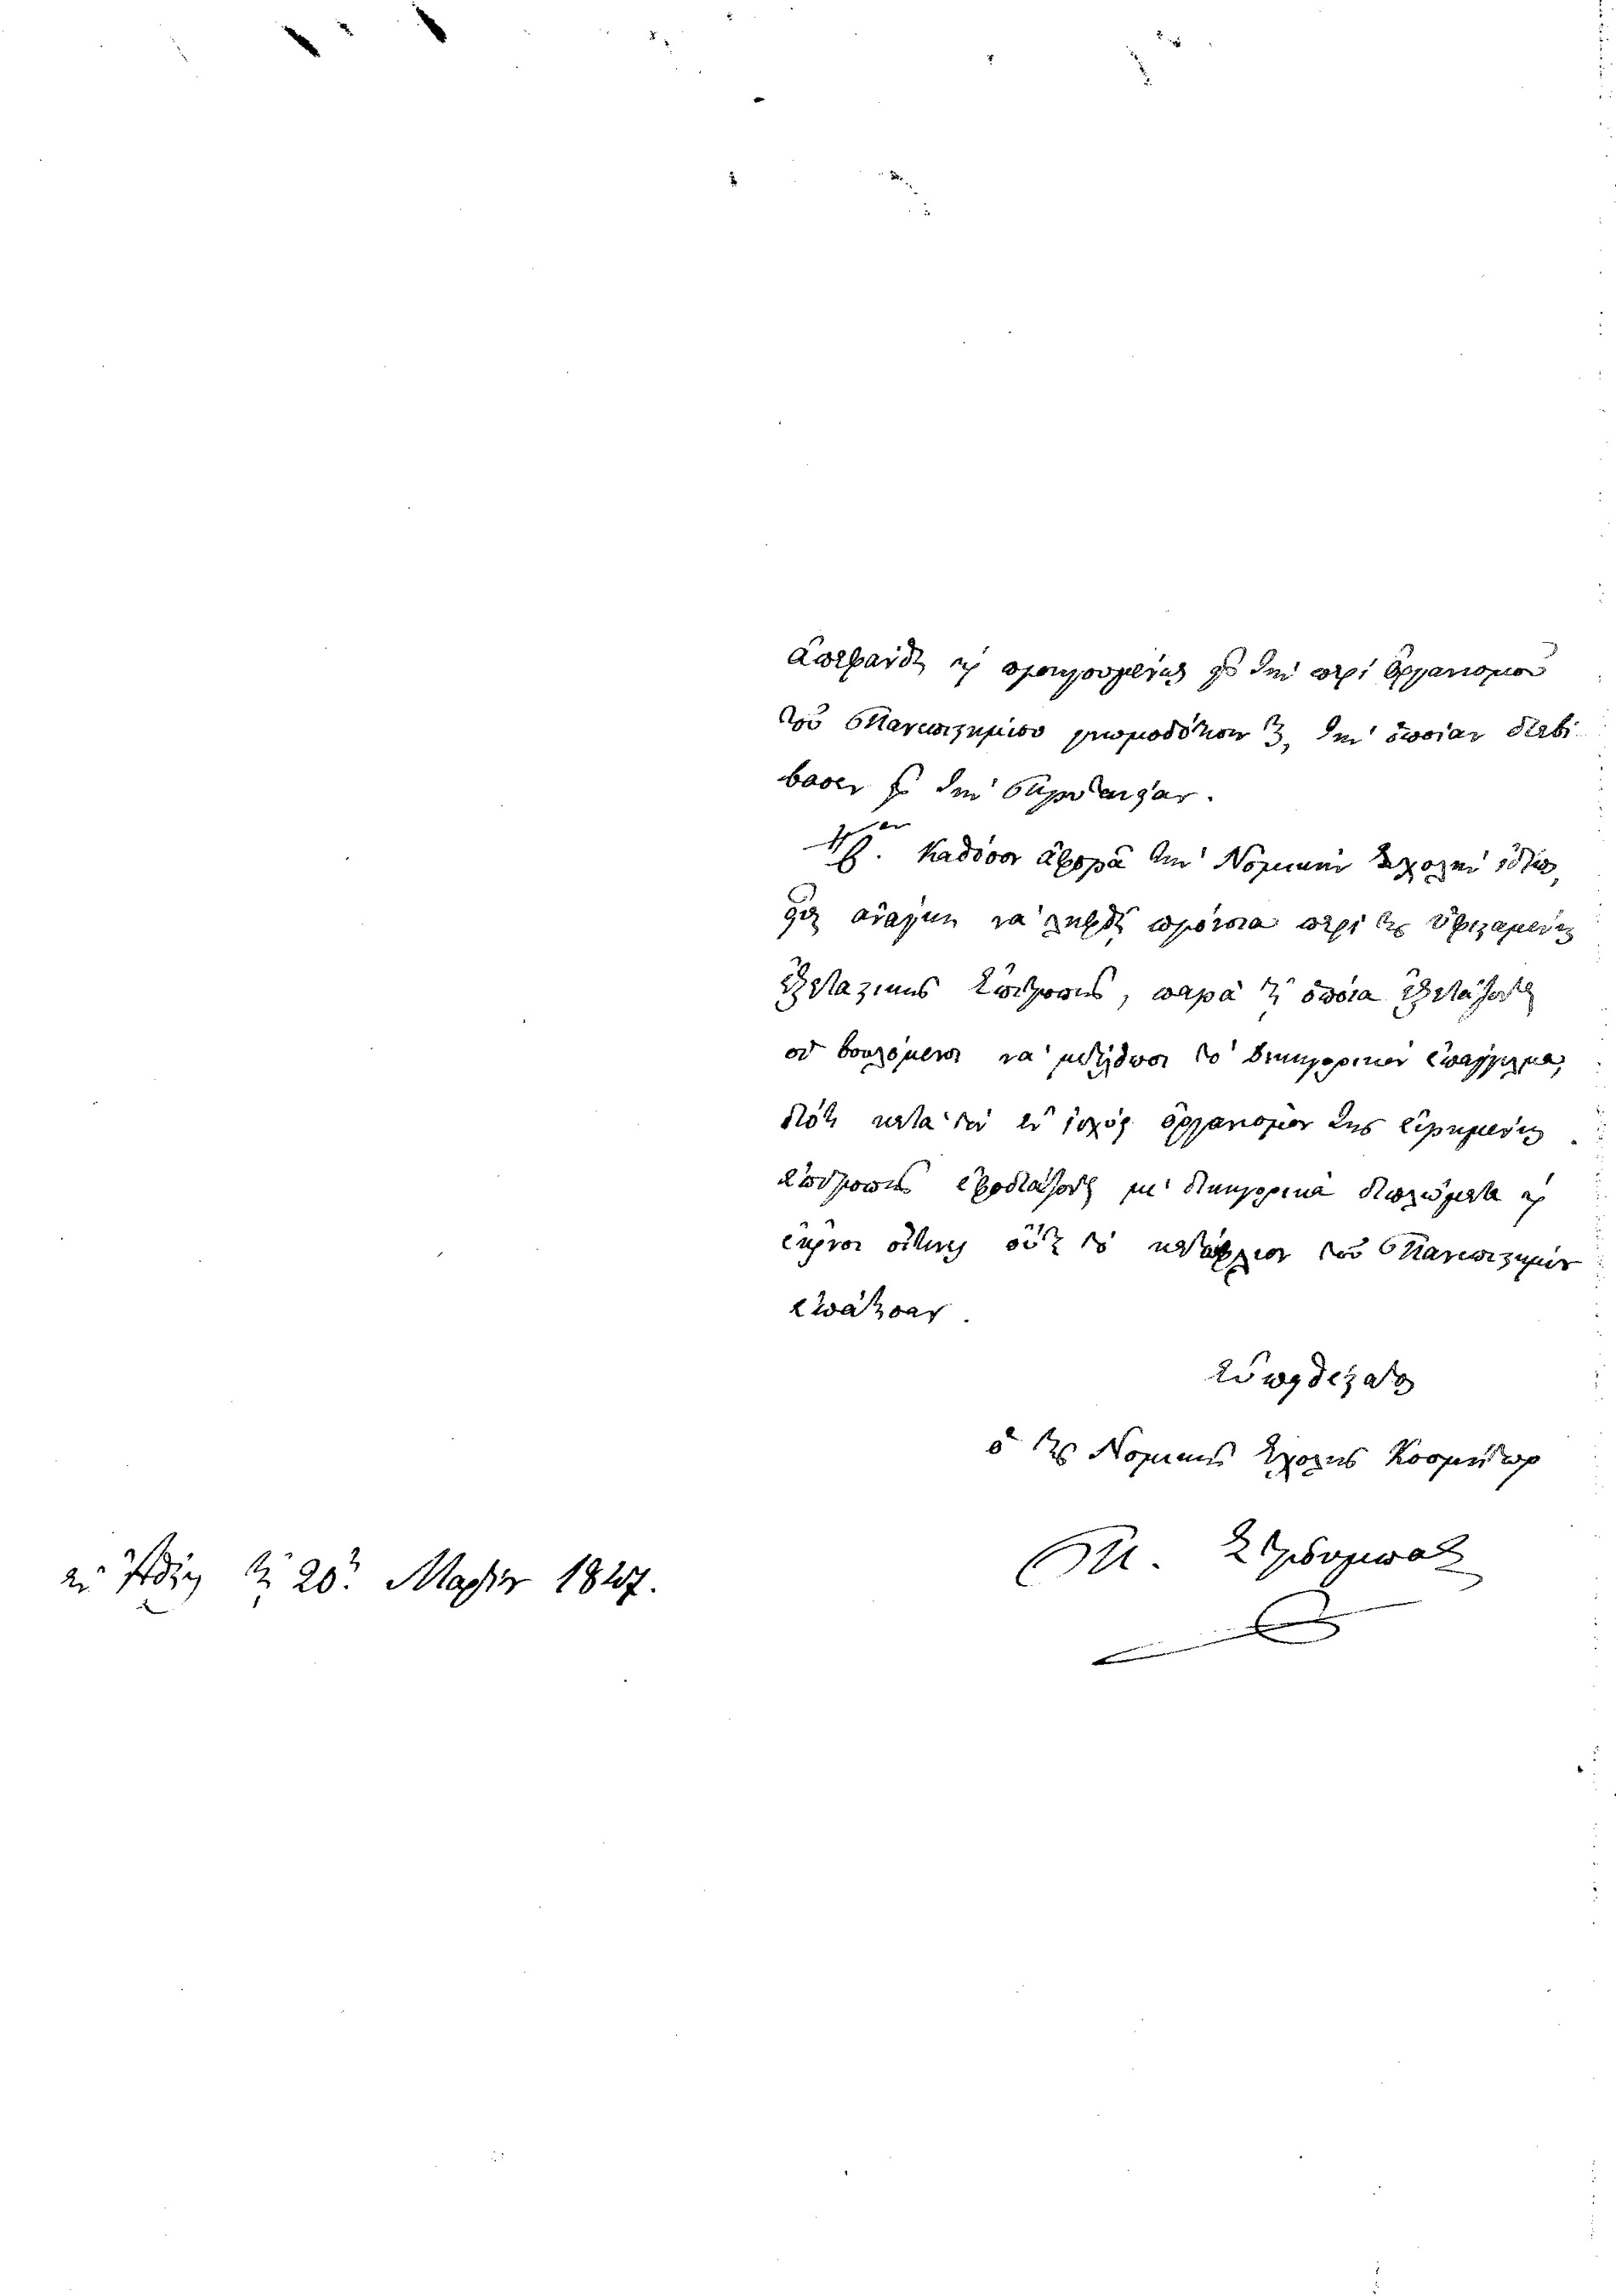 καὶ εἰς τὴν περὶ ὀργανισμοῦ
τοῦ Πανεπιστημίου γνωμοδότησίν της, τὴν ὁποίαν διεβί-
βασεν εἰς τὴν
Καθόσον ἀφορᾷ τὴν Νομικὴν Σχολὴν ἰδίως,
εἶναι ἀνάγκη νὰ ληφθῇ πρόνοια περὶ τῆς ὑφισταμένης
ἐξεταστικῆς ἐπιτροπῆς, παρὰ τῇ ὁποίᾳ ἐξετάζονται
οἱ βουλόμενοι νὰ μετέλθωσι τὸ δικηγορικὸν ἐπάγγελμα,
διότι κατὰ τὸν ἐν ἰσχύϊ ὀργανισμὸν τῆς εἰρημένης
ἐπιτροπῆς ἐφοδιάζονται μὲ δικηγορικὰ διπλώματα καὶ
ἐκεῖνοι οἵτινες οὔτε τὸ τοῦ Πανεπιστημίου
ἐπάτησαν.
Εὐπειθέστατος
ὁ τῆς Νομικῆς Σχολῆς Κοσμήτωρ
ἐν Ἀθήναις τῇ 20ῇ Μαρτίου 1847.